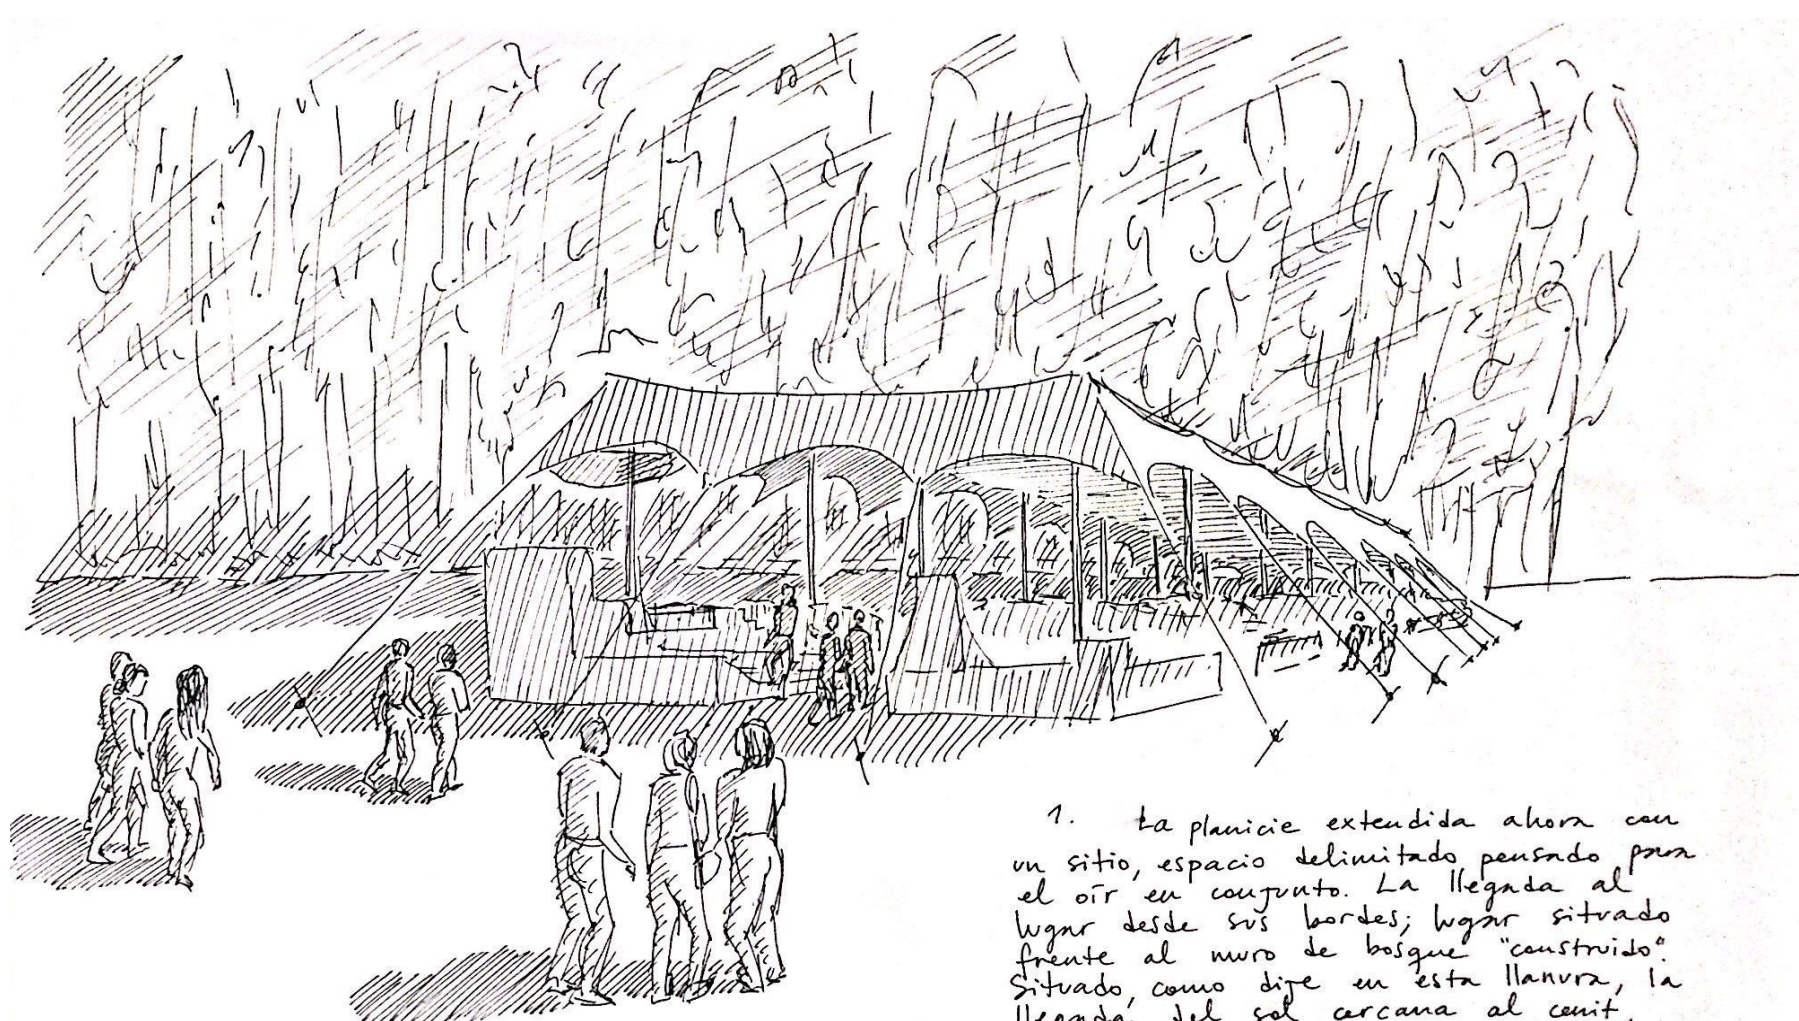 1. La planicie extendida ahora con
un sitio, espacio delimitado pensado para
el oír en conjunto. La llegada al
lugar desde sus bordes; lugar situado
frente al muro de bosque "construido".
Situado, como dije en esta llanura, la
llegada del sol cercana al cenit,